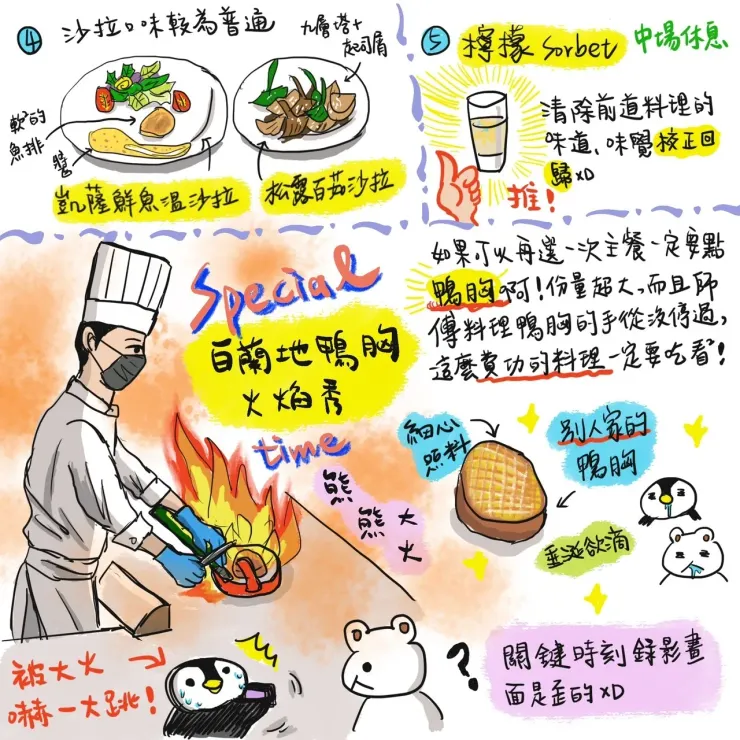 ④ 沙拉口味較為普通
九層塔+
起司屑
軟軟的
魚排
醬
凱薩鮮魚溫沙拉
松露百菇沙拉
⑤ 檸檬 Sorbet 中場休息
清除前道料理的
味道、味覺校正回
歸XD
推!
Special
白蘭地鴨胸
火焰秀
time
熊
熊
大
火
如果可以再選一次主餐一定要點
鴨胸啊!份量超大,而且師
傅料理鴨胸的手從沒停過,
這麼費功的料理一定要吃看看!
細心
照料
別人家的
鴨胸
垂涎欲滴
被大火
嚇一大跳!
?
關鍵時刻錄影畫
面是歪的XD